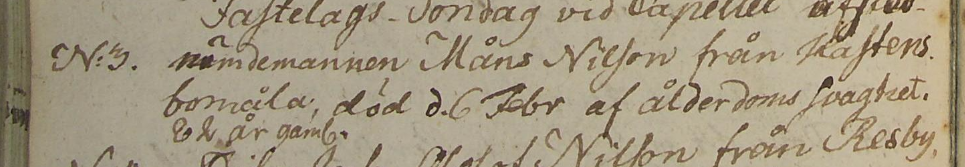 Fastelags-Söndag vid Capellet
N:3. nämdemannen Måns Nilson från Kastens.
bomåla, död d. 6 Febr af ålderdoms svaghet.
år gaml.
Nilson från Resby,